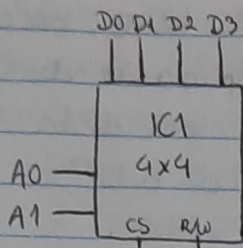 D0 D1 D2 D3
IC1
4x4
A0
A1
CS R/W